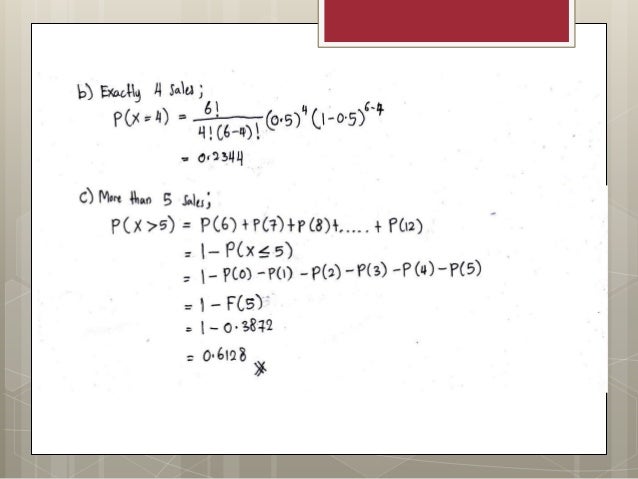 b) Exactly 4 sales;
P(X = 4) = 6! / 4! (6-4)! (0.5)^4 (1-0.5)^6-4
= 0.2344
c) More than 5 sales;
P(X >5) = P(6) + P(7) + P(8) + ..... + P(12)
= 1 - P(X ≤ 5)
= 1 - P(0) - P(1) - P(2) - P(3) - P(4) - P(5)
= 1 - F(5)
= 1 - 0.3872
= 0.6128